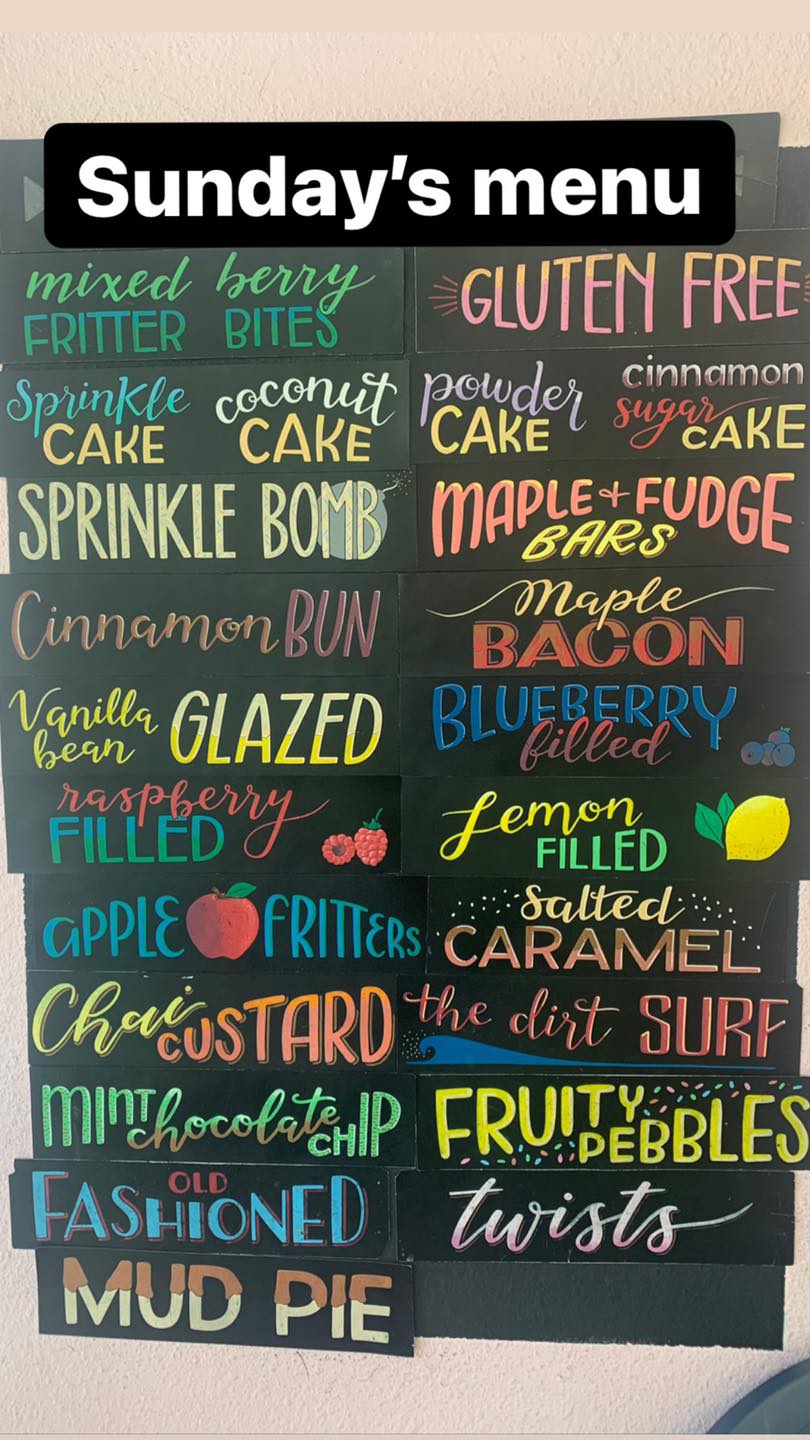 Sunday's menu
mixed berry
FRITTER BITES
GLUTEN FREE
Sprinkle
CAKE
coconut
CAKE
powder
CAKE
cinnamon
sugar
CAKE
SPRINKLE BOMB
MAPLE + FUDGE
BARS
Cinnamon BUN
Maple
BACON
Vanilla
bean
GLAZED
BLUEBERRY
filled
raspberry
FILLED
Lemon
FILLED
APPLE FRITTERS
Salted
CARAMEL
Chai
CUSTARD
the dirt SURF
MINT chocolate CHIP
FRUITY
PEBBLES
OLD
FASHIONED
twists
MUD PIE